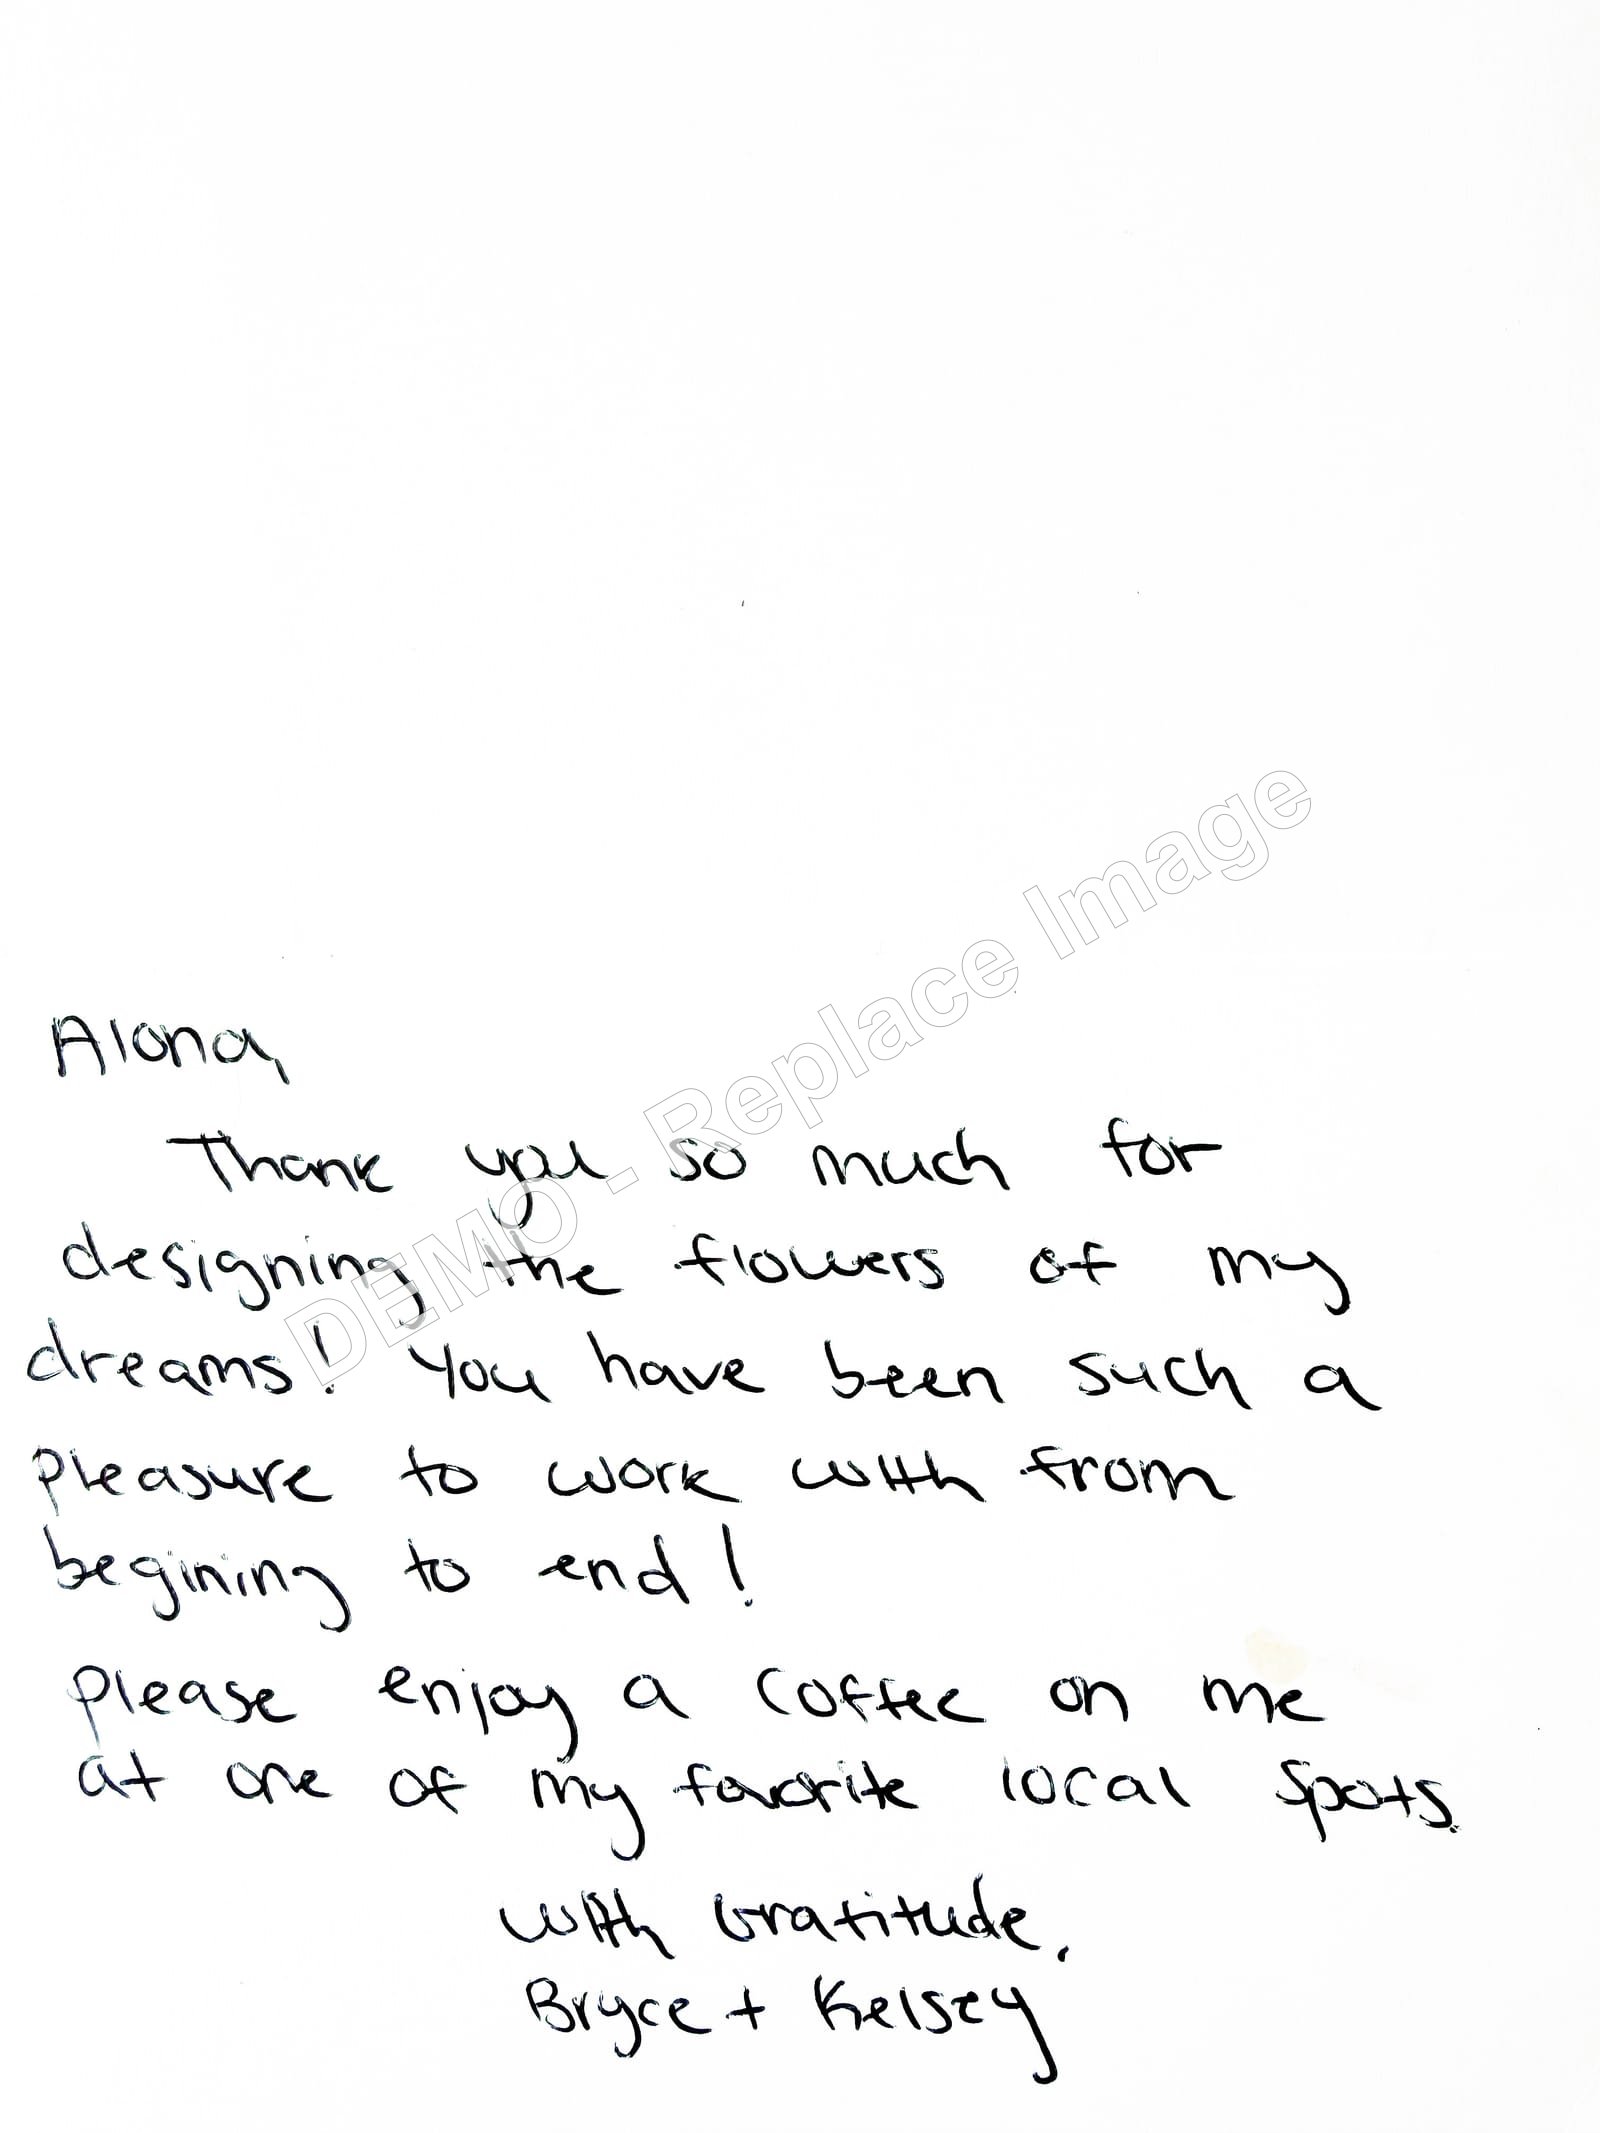 Alona,
Thank you so much for
designing the flowers of my
dreams! You have been such a
pleasure to work with from
begining to end!
please enjoy a coffee on me
at one of my favorite local spots.
with Gratitude,
Bryce + Kelsey
DEMO - Replace Image